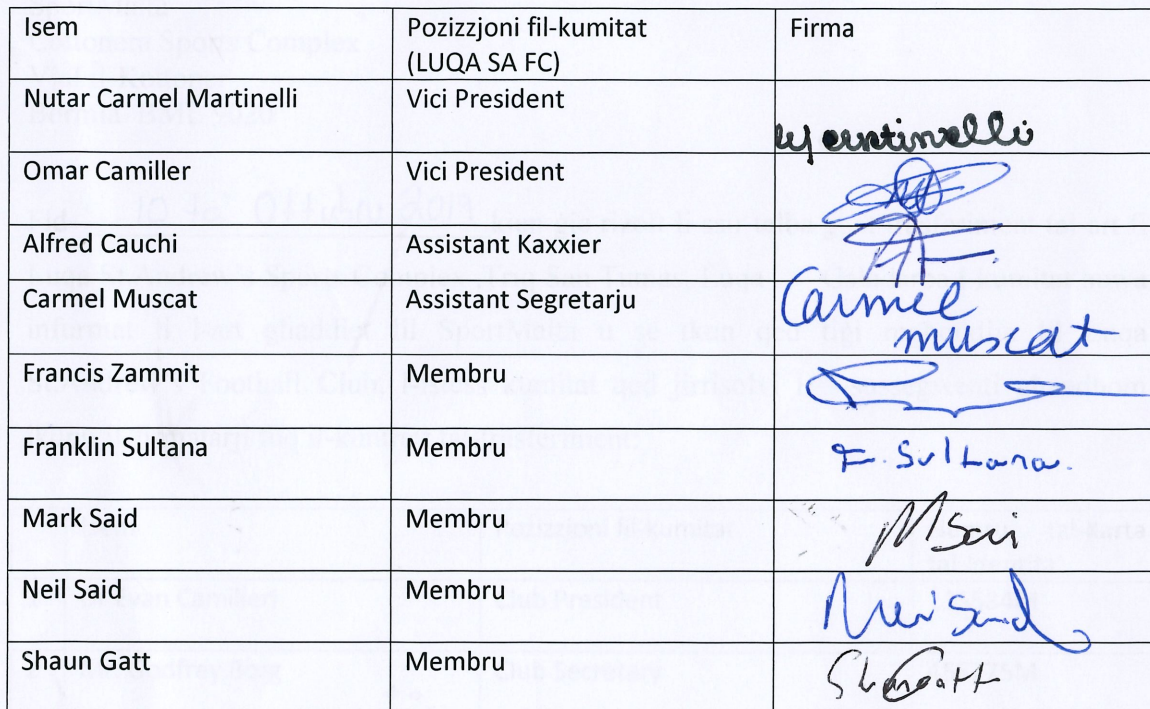 Isem Pozizzjoni fil-kumitat Firma
(LUQA SA FC)
Nutar Carmel Martinelli Vici President
Omar Camiller Vici President
Alfred Cauchi Assistant Kaxxier
Carmel Muscat Assistant Segretarju Carmel
muscat
Francis Zammit Membru
Franklin Sultana Membru F. Sultana.
Mark Said Membru
Neil Said Membru
Shaun Gatt Membru